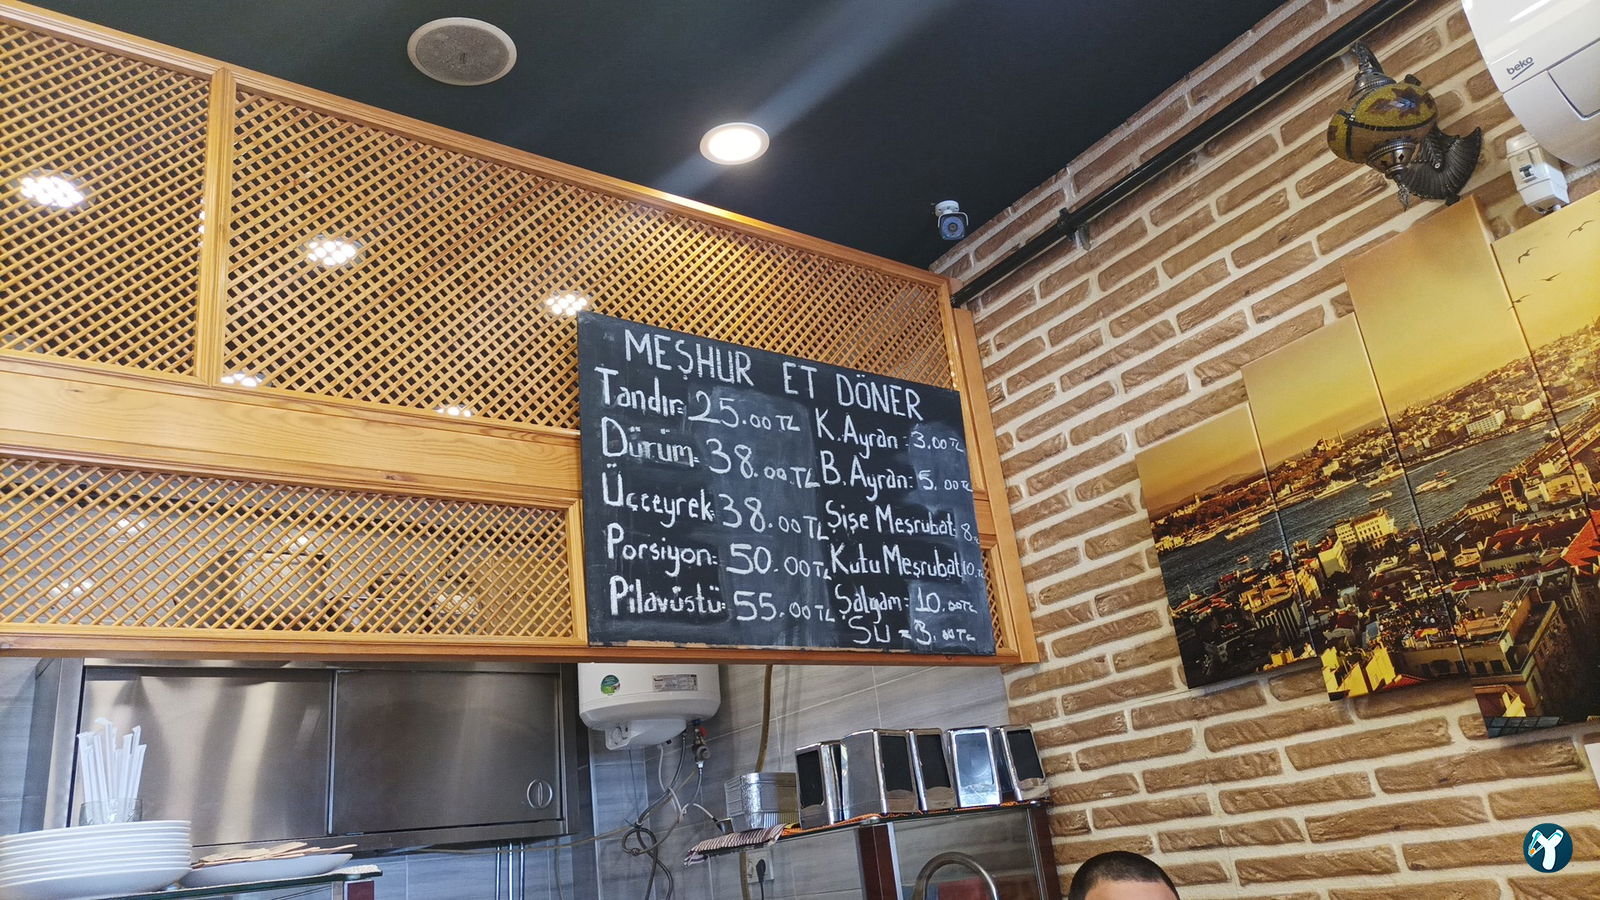 MEŞHUR ET DÖNER
Tandır: 25.00 TL
Dürüm: 38.00 TL
Üççeyrek: 38.00 TL
Porsiyon: 50.00 TL
Pilavüstü: 55.00 TL
K.Ayran: 3.00 TL
B.Ayran: 5.00 TL
Şişe Meşrubat: 8
Kutu Meşrubat 10
Şalgam: 10.00 TL
Su = 3.00 TL
beko